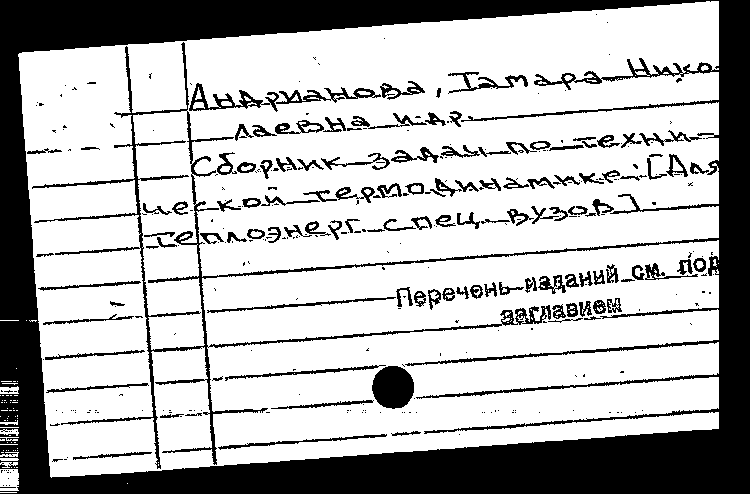 Андрианова, Тамара Нико-
лаевна и др.
Сборник задач по техни-
ческой термодинамике: [Для
теплоэнерг. спец. вузов].
Перечень изданий см. под
заглавием